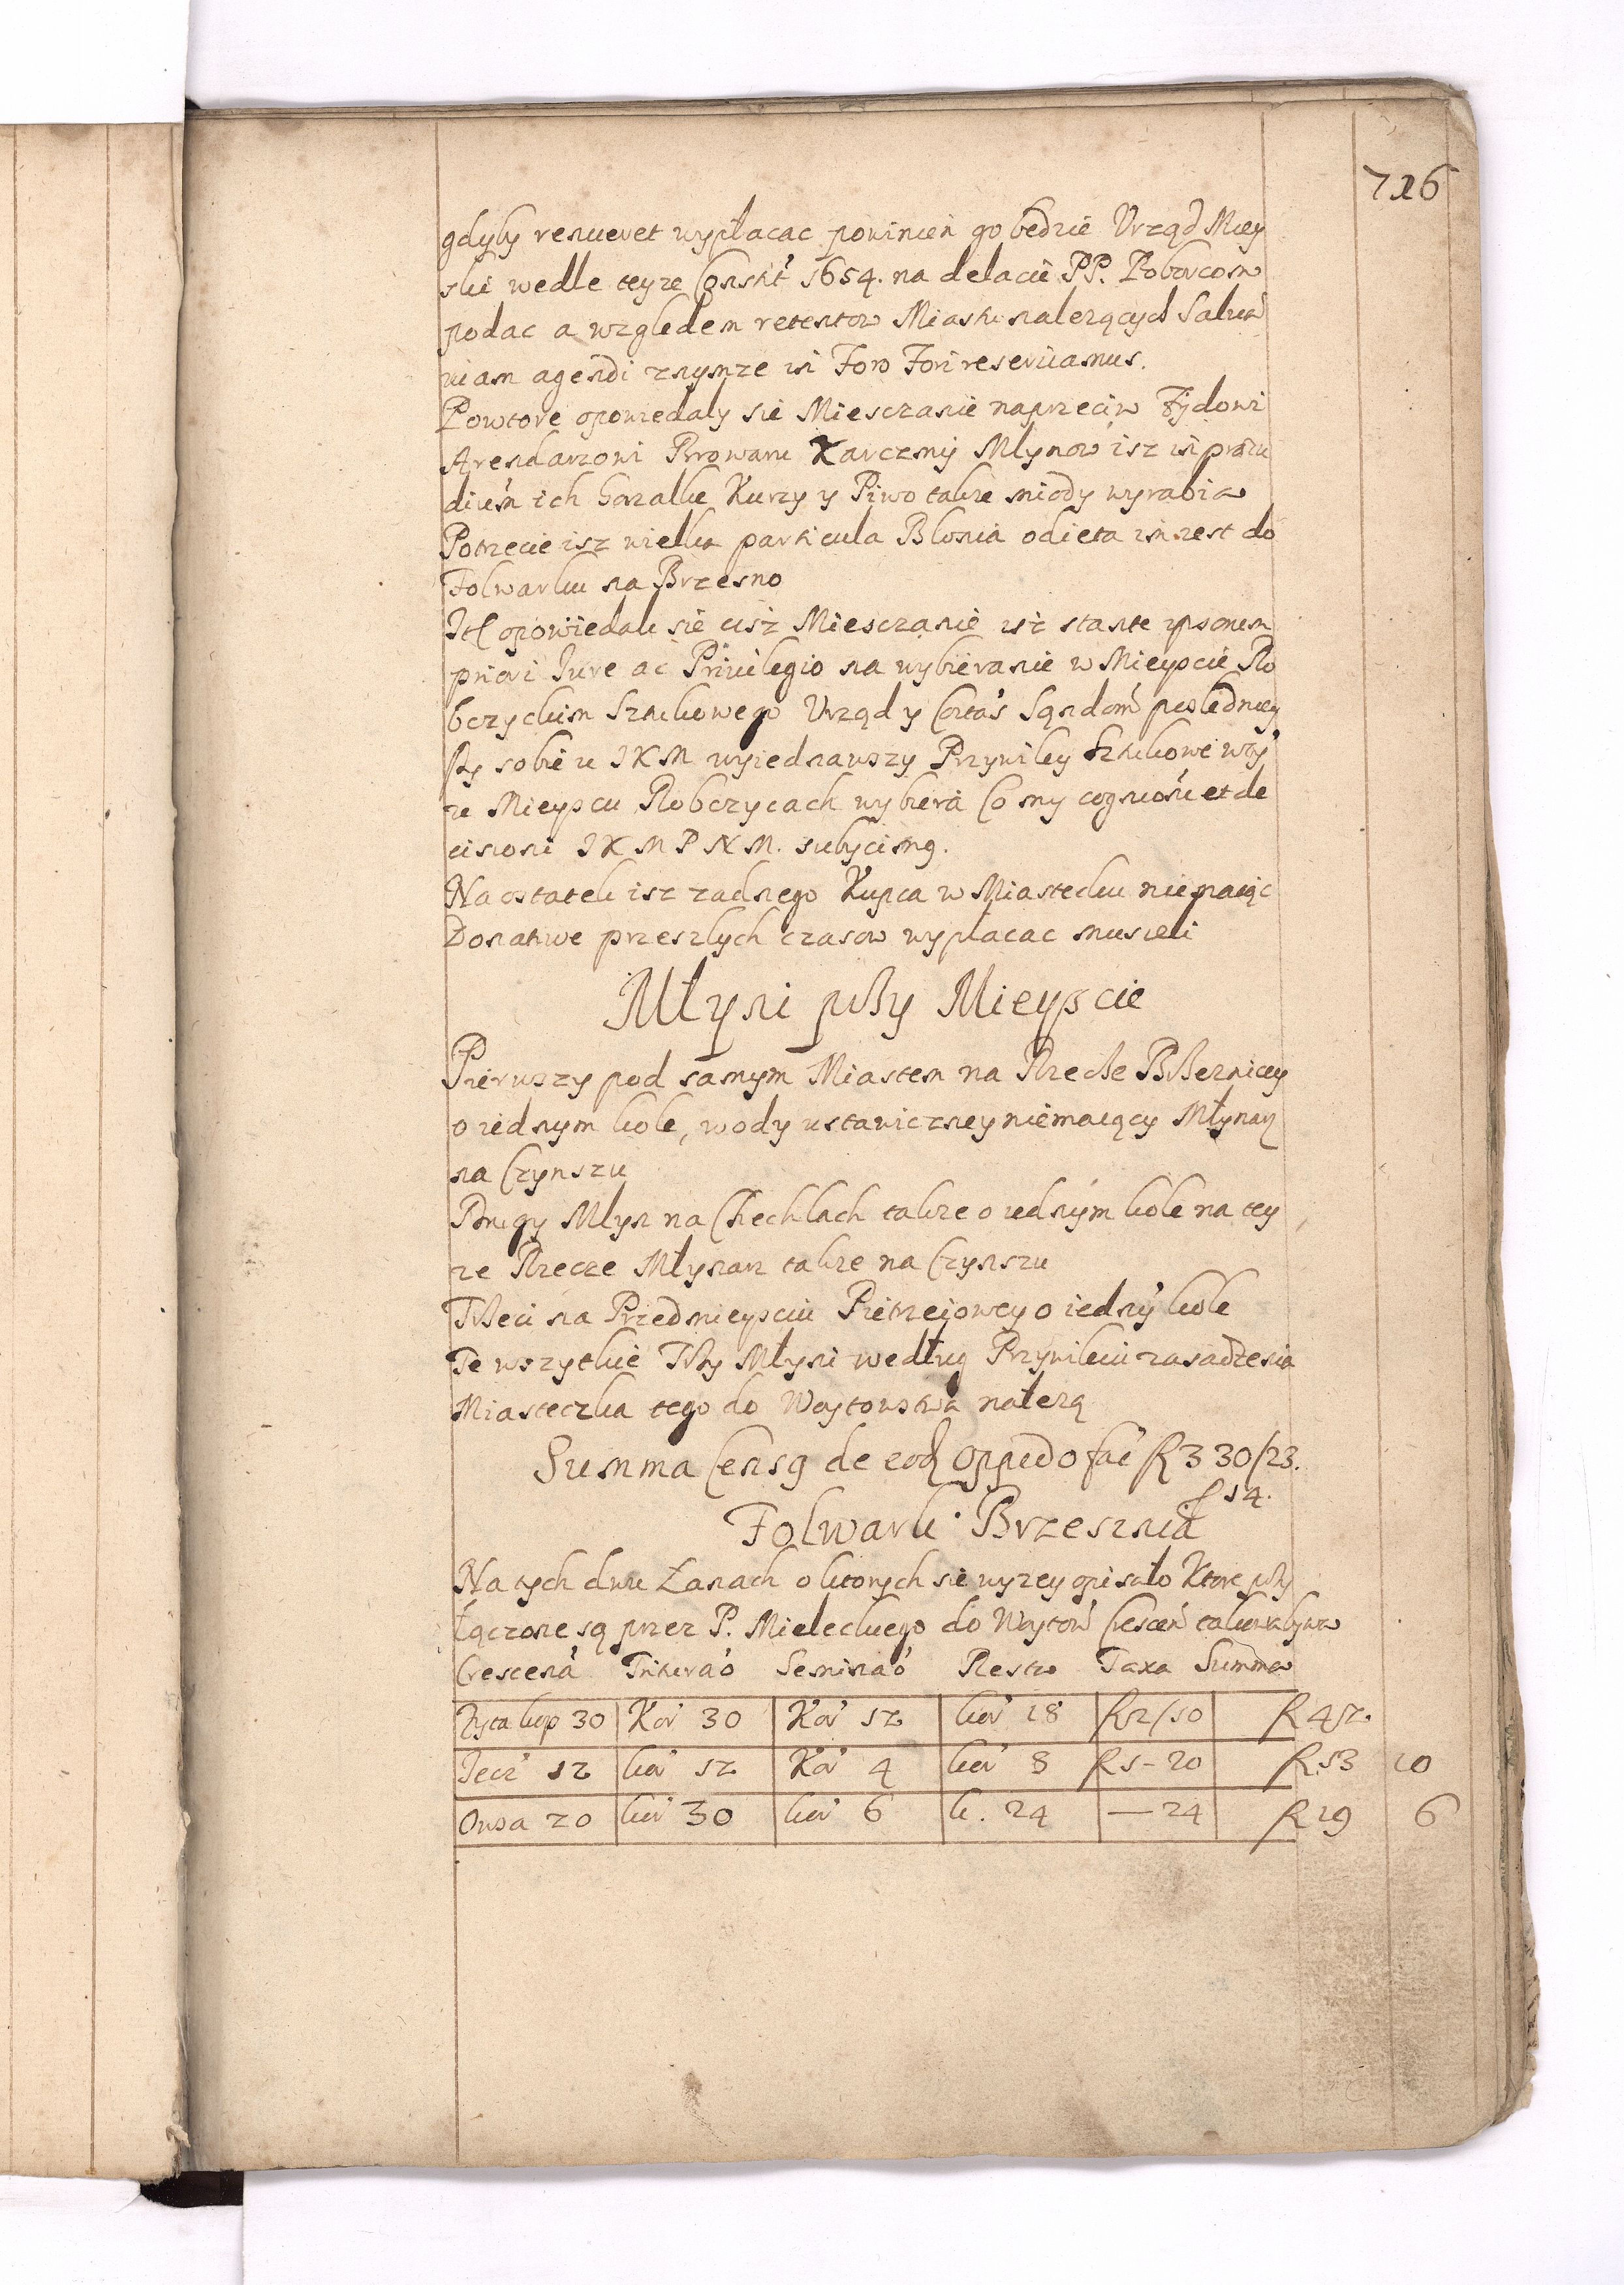 716
gdyby renueret wypłacac powinien go bedzie Urząd Miey
ski wedle teyze Constit 1654. na delacie PP. Poborcow
podac a wzgledem retentow Miastu nalezących Salua
viam agendi znymze in Foro Fori reseruamus.
Powtore opowiedaly sie Miesczanie naprzeciw Żydowi
Arendarzowi Browaru Karczmy Mlynow isz in praeiu
dicium ich Gorzalke Kurzy y Piwo takze miody wyrabia
Potrzecie isz wielka particula Blonia odieta im iest do
Folwarku na Brzesno
It opowiedali sie cisz Miesczanie isz stante ipsorum
priori Jure ac Priuilegio na wybieranie w Mieyscie Ro
bczyckim Sztukowego Urząd y Contas Sąndom posledniey
szy sobie u JKM wyiednawszy Przywiley Sztukowe wty
ze Mieyscu Robczycach wybiera Co my cognioni et de
cisioni JKMPNM. subycimg.
Na ostatek isz zadnego Kupca w Miasteczku nie maiąc
Donatiwe przeszlych czasow wypłacac musieli
Młyni przy Mieyscie
Pierwszy pod samym Miastem na Rzecze Bszeznicey
o iednym kole, wody ustawiczney niemaiący Młynarz
na Czynszu
Drugy Mlyn na Chechlach takze o iednym kole na tey
ze Rzecze Młynarz takze na Czynszu
Trzeci na Przedmieysciu Pietrzejowey o iedny kole
Te wszytkie Trzy Młyni według Przywileiu zasadzenia
Miasteczka tego do Woytowstwa nałezą
Summa Censg de eod Oppido fac R 330/23.
f 14.
Folwark Brzesznia
Na tych dwu Łanach o ktorych sie wyzey opisało Ktore przy
łączone są przez P. Mieleckiego do Woytow Crescen taka bywa
Crescena Triturao Seminao Resta Taxa Summa
Zyta kop 30 Kor 30 Kor 12 kor 18 R2/10 R 42
Jecz 12 kor 12 Kor 4 kor 8 R1-20 R 13 10
Owsa 20 kor 30 kor 6 k. 24 — 24 R 19 6